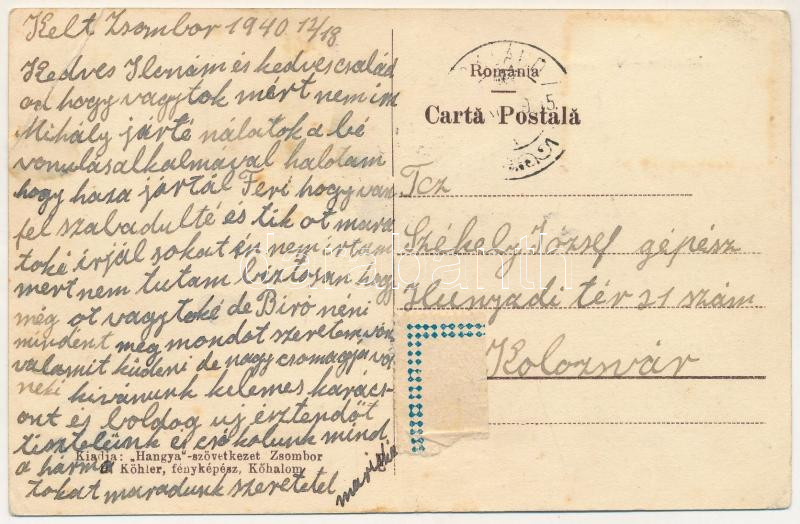 Kelt Zsombor 1940 12/18
Kedves Ilonám és kedves család
od hogy vagytok mért nem irsz
Mihály járté nálatok a bé
vonulás alkalmával halotam
hogy haza jártál Feri hogy van
fel szabadulté és tik ot mara
toké irjál sokat én nem irtam
mert nem tutam biztosan hogy
még ot vagytoké de Biró néni
mindent meg mondot szeretem vón
valamit küdeni de nagy csomagja vót
neki kivánunk kelemes karács
ont és boldog uj esztendőt
tisztelünk és csókolunk mind
a hárma
tokat maradunk szeretetel
mariska
Kiadja: „Hangya"-szövetkezet Zsombor
Köhler, fényképész, Kőhalom
România
Cartă Poștală
Tcz
Székely József gépész
Hunyadi tér 21 szám
Kolozsvár
darabanth